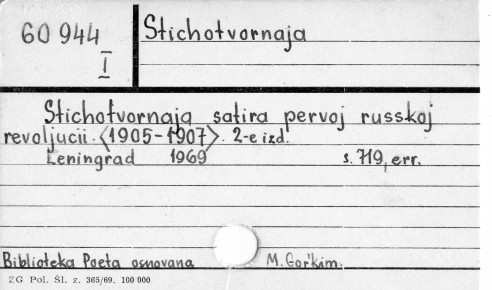 60944
I
Stichotvornaja
Stichotvornaja satira pervoj russkoj
revoljucii. <1905-1907>. 2-e izd.
Leningrad 1969 s. 719, err.
Biblioteka Poeta osnovana M. Gor'kim.
ZG Pol. Śl. z. 365/69. 100 000